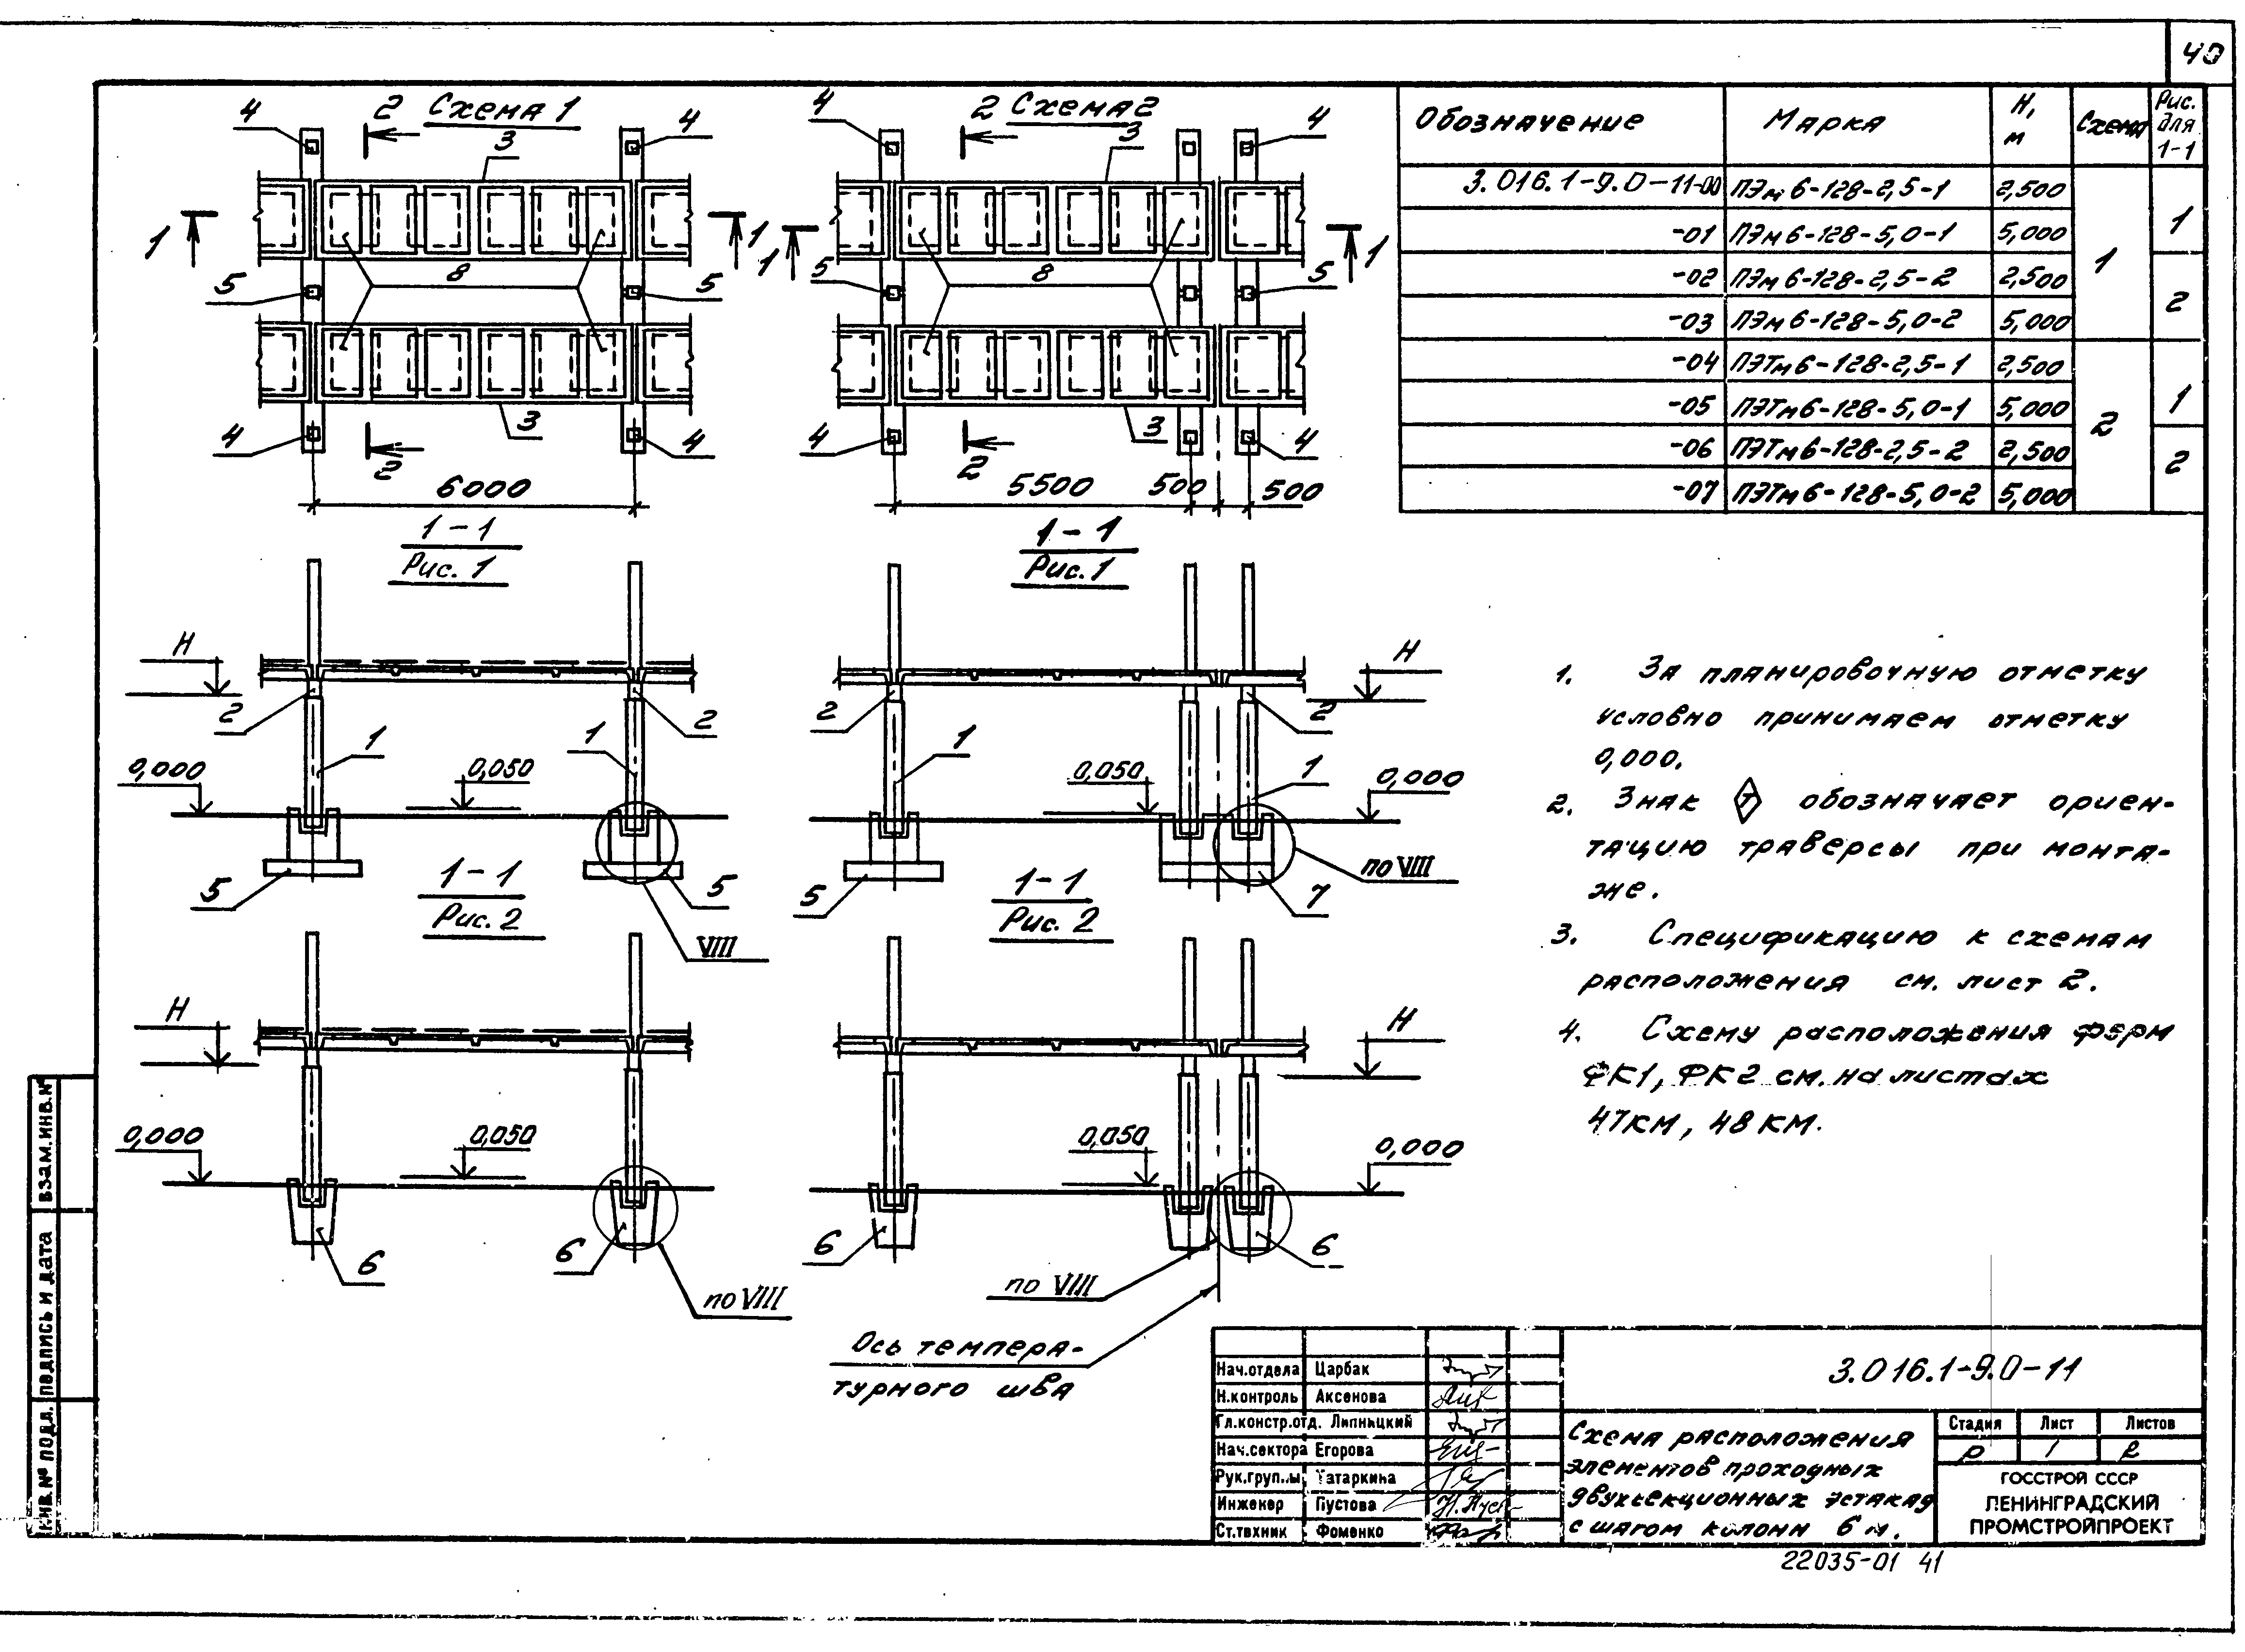 40
Схема 1
4
2
4
3
1
1
8
5
5
4
3
4
2
6000
Схема 2
4
2
4
3
1
1
8
5
5
4
3
4
2
5500 500 500
Обозначение Марка Н, м Схема Рис. для 1-1
3.016.1-9.0-11-00 ПЭм 6-128-2,5-1 2,500 1 1
-01 ПЭм 6-128-5,0-1 5,000
-02 ПЭм 6-128-2,5-2 2,500 2
-03 ПЭм 6-128-5,0-2 5,000
-04 ПЭТм 6-128-2,5-1 2,500 2 1
-05 ПЭТм 6-128-5,0-1 5,000
-06 ПЭТм 6-128-2,5-2 2,500 2
-07 ПЭТм 6-128-5,0-2 5,000
1-1
Рис. 1
Н
2
2
1
1
0,000
0,050
5
5
VIII
1-1
Рис. 1
Н
2
2
1
1
0,050
0,000
5
7
по VIII
1-1
Рис. 2
Н
0,000
0,050
6
6
по VIII
1-1
Рис. 2
Н
0,050
0,000
6
6
по VIII
Ось темпера-
турного шва
1. За планировочную отметку
условно принимаем отметку
0,000.
2. Знак Т обозначает ориен-
тацию траверсы при монта-
же.
3. Спецификацию к схемам
расположения см. лист 2.
4. Схему расположения ферм
ФК1, ФК2 см. на листах
47КМ, 48КМ.
Взам.инв.№
Подпись и дата
Инв.№ подл.
Нач.отдела Царбак
Н.контроль Аксенова
Гл.констр.отд. Липницкий
Нач.сектора Егорова
Рук.группы Татаркина
Инженер Пустова
Ст.техник Фоменко
3.016.1-9.0-11
Схема расположения
элементов проходных
двухсекционных эстакад
с шагом колонн 6 м.
Стадия Лист Листов
Р 1 2
ГОССТРОЙ СССР
ЛЕНИНГРАДСКИЙ
ПРОМСТРОЙПРОЕКТ
22035-01 41